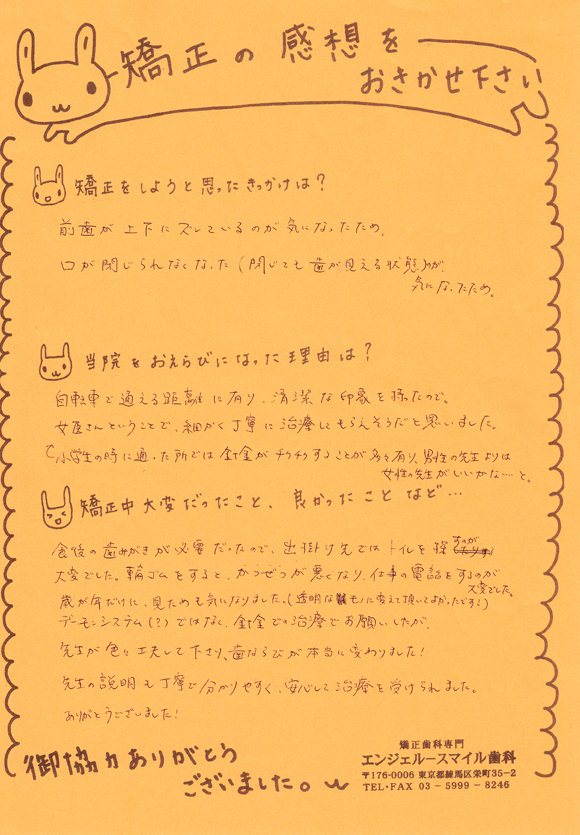 矯正の感想を
おきかせ下さい
矯正をしようと思ったきっかけは?
前歯が上下にズレているのが気になったため。
口が閉じられなくなった(閉じても歯が見える状態)のが
気になったため。
当院をおえらびになった理由は?
自転車で通える距離に有り、清潔な印象を持ったので。
女医さんということで、細かく丁寧に治療してもらえそうだと思いました。
小学生の時に通った所では針金がチクチクすることが多々有り、男性の先生よりは
女性の先生がいいかな…と。
矯正中大変だったこと、良かったことなど…
食後の歯みがきが必要だったので、出掛け先ではトイレを探すのが
大変でした。輪ゴムをすると、かつぜつが悪くなり、仕事の電話をするのが
大変でした。
歳が年だけに、見ためも気になりました。(透明なモノに変えて頂いてよかったです!)
デーモンシステム(?)ではなく、針金での治療でお願いしたが、
先生が色々工夫して下さり、歯ならびが本当に変わりました!
先生の説明も丁寧で分かりやすく、安心して治療を受けられました。
ありがとうございました!
御協力ありがとう
ございました。
矯正歯科専門
エンジェルースマイル歯科
〒176-0006 東京都練馬区栄町35-2
TEL・FAX 03-5999-8246